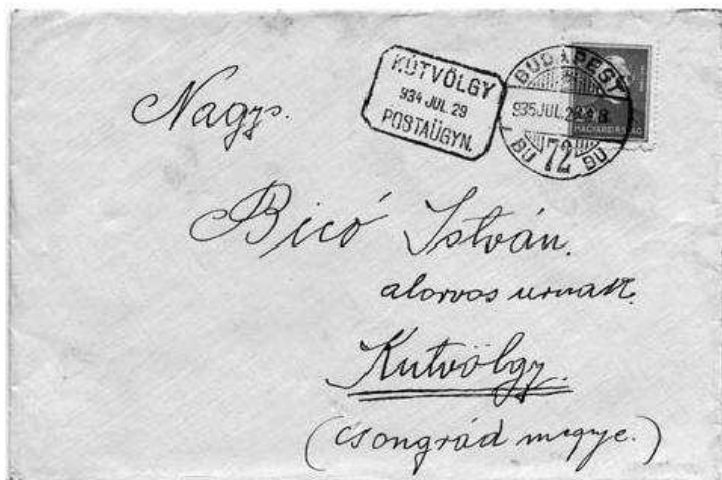 KÚTVÖLGY
934 JUL 29
POSTAÜGYN.
BUDAPEST
935 JUL. 8
BU 72 BU
MAGYARORSZÁG
Nagys.
Bicó István.
alorvos urnak.
Kutvölgy.
(Csongrád megye.)